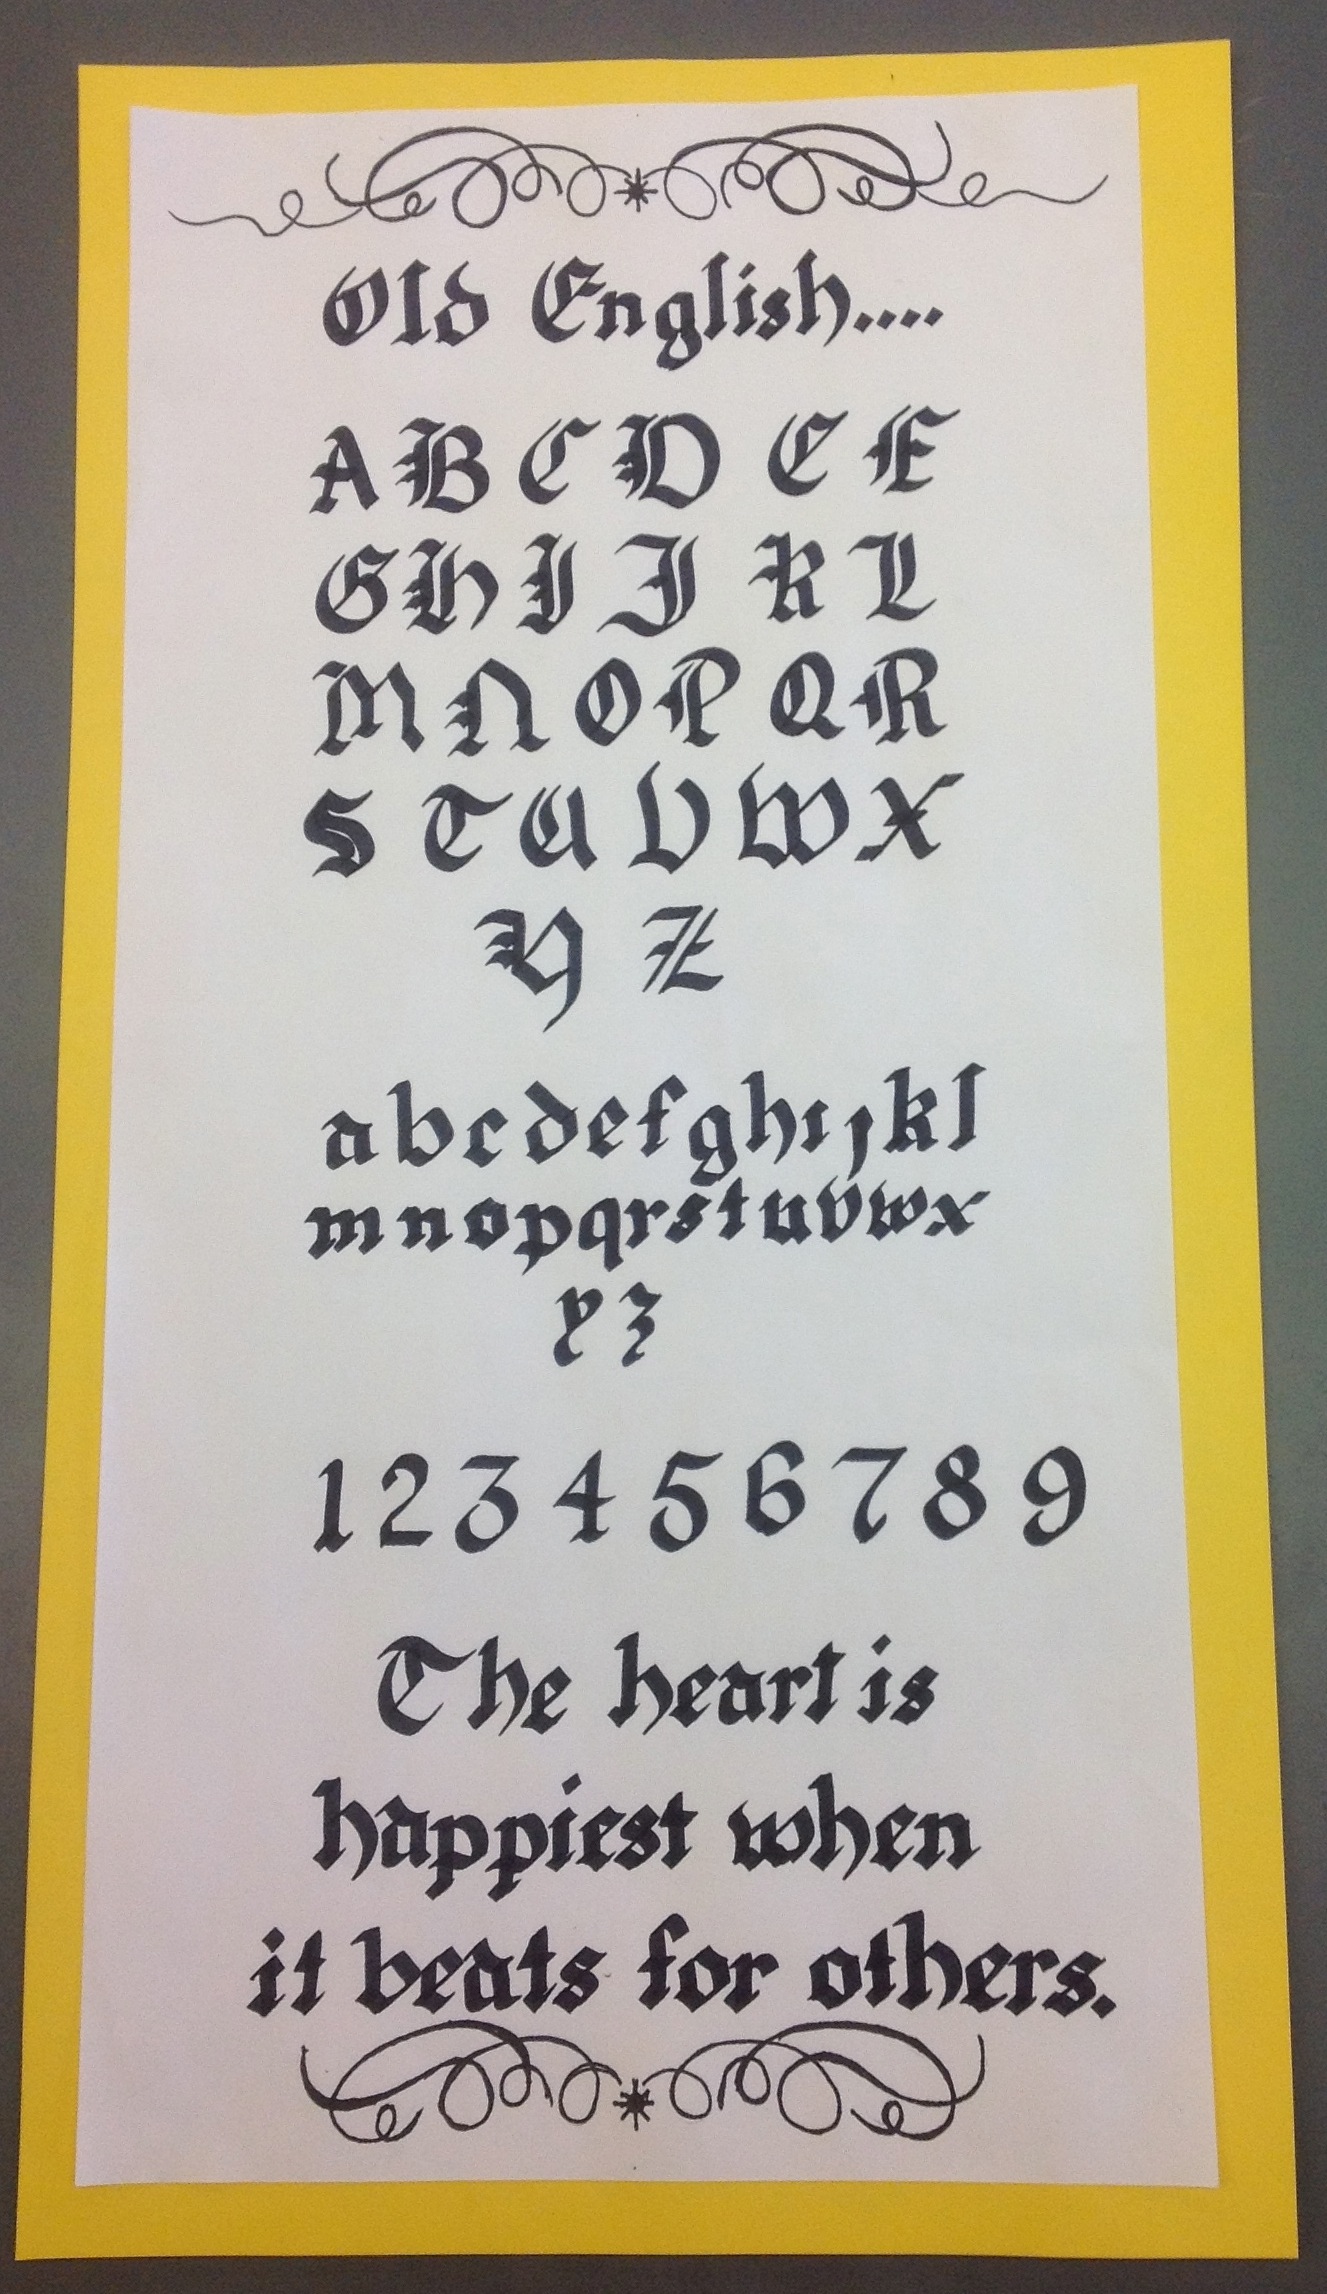 Old English....
A B C D E F
G H I J K L
M N O P Q R
S T U V W X
Y Z
a b c d e f g h i j k l
m n o p q r s t u v w x
y z
1 2 3 4 5 6 7 8 9
The heart is
happiest when
it beats for others.